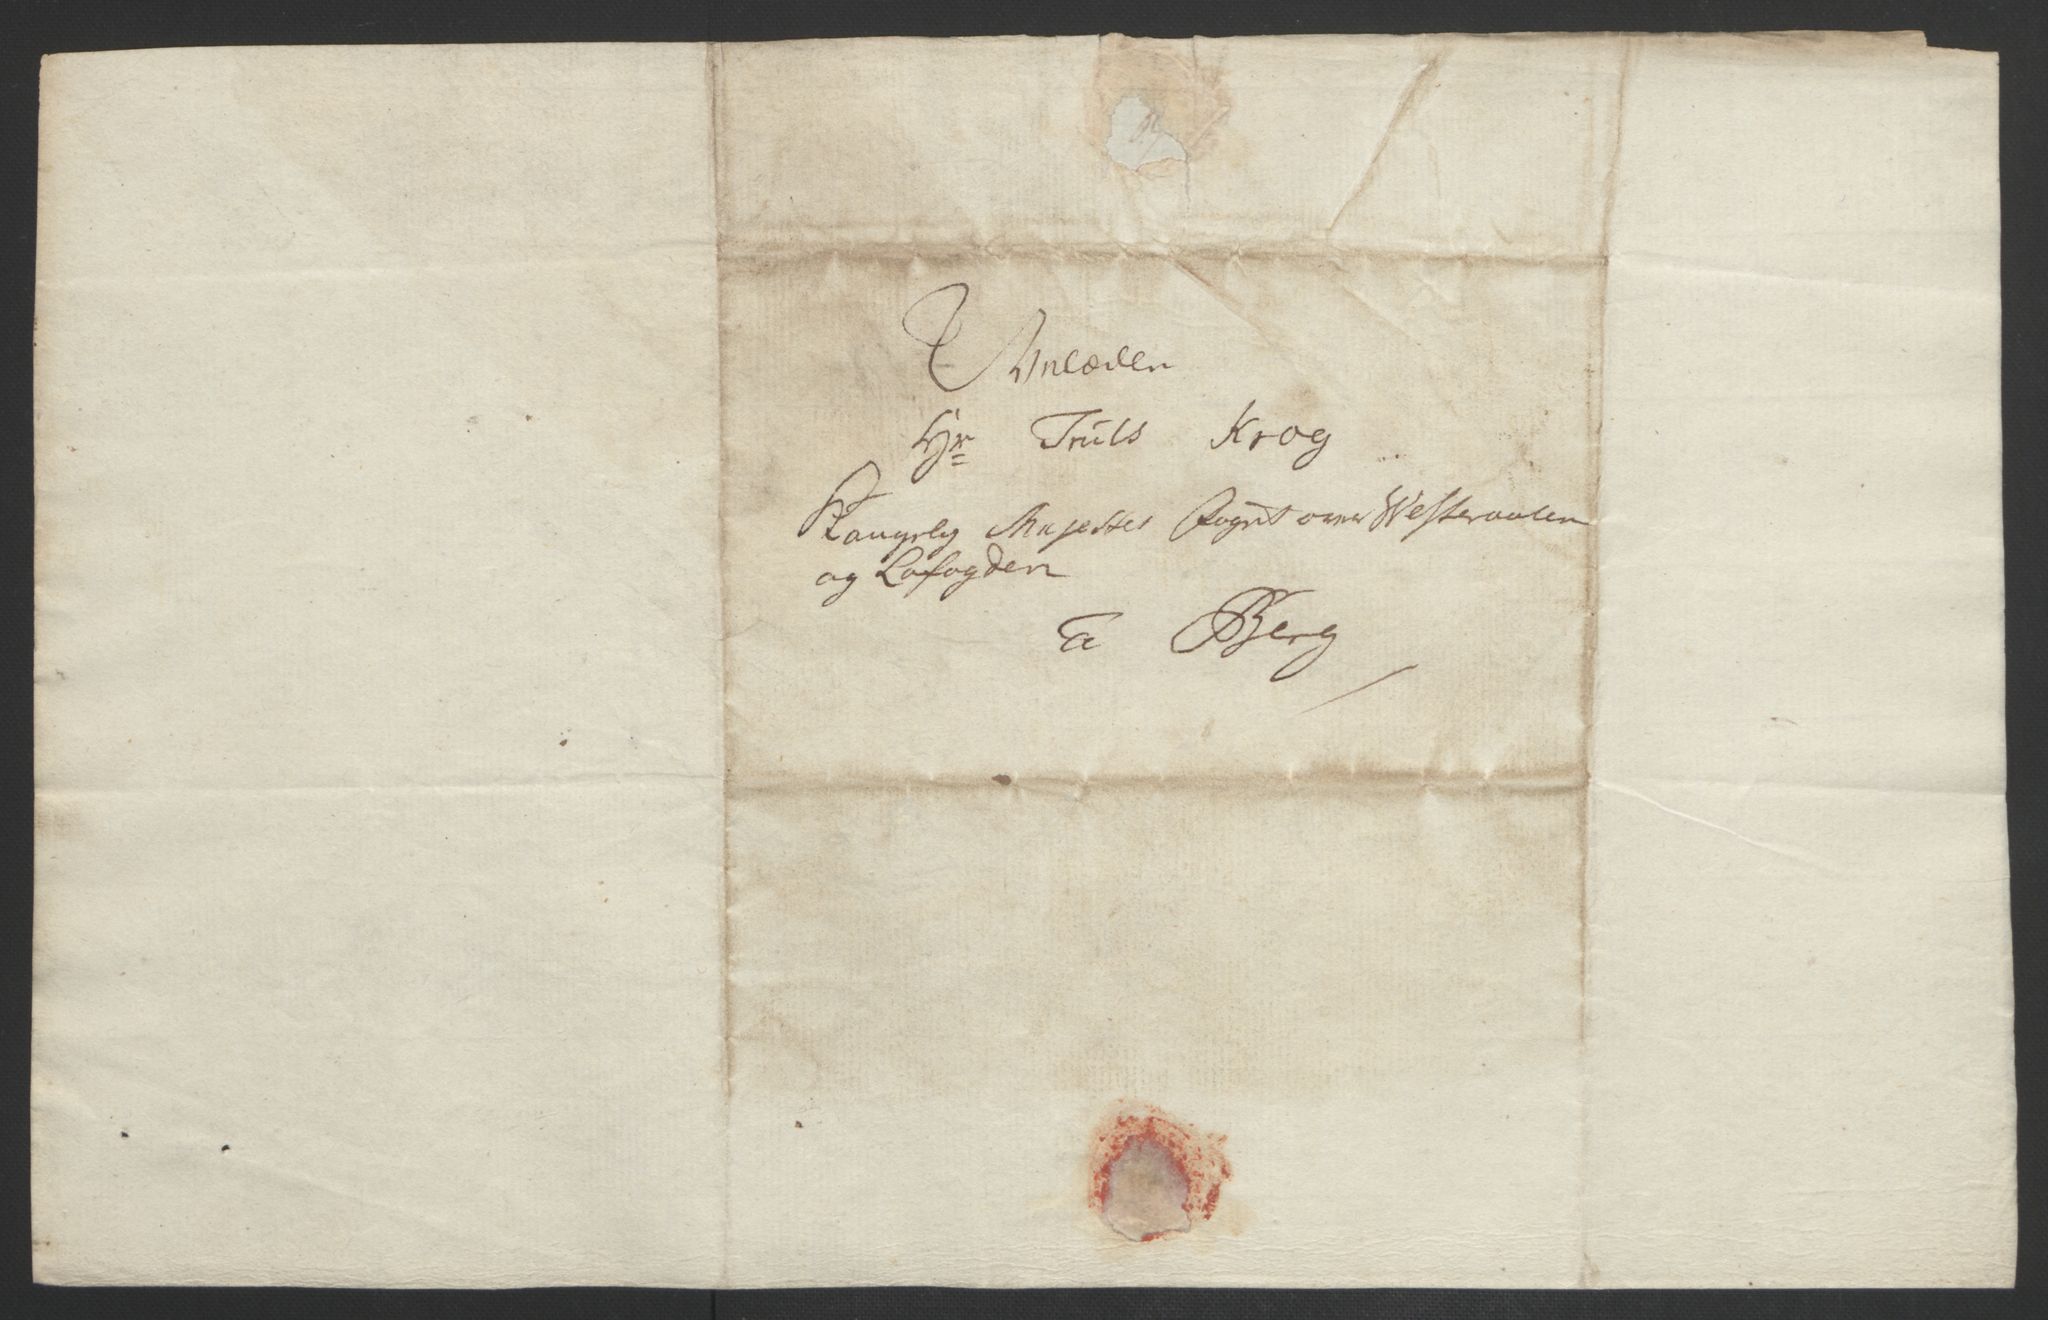 Velædle
Hr Truls Krog
Kongelig Majestes Fogit over Westeraalen
og Lofogden
a Berg